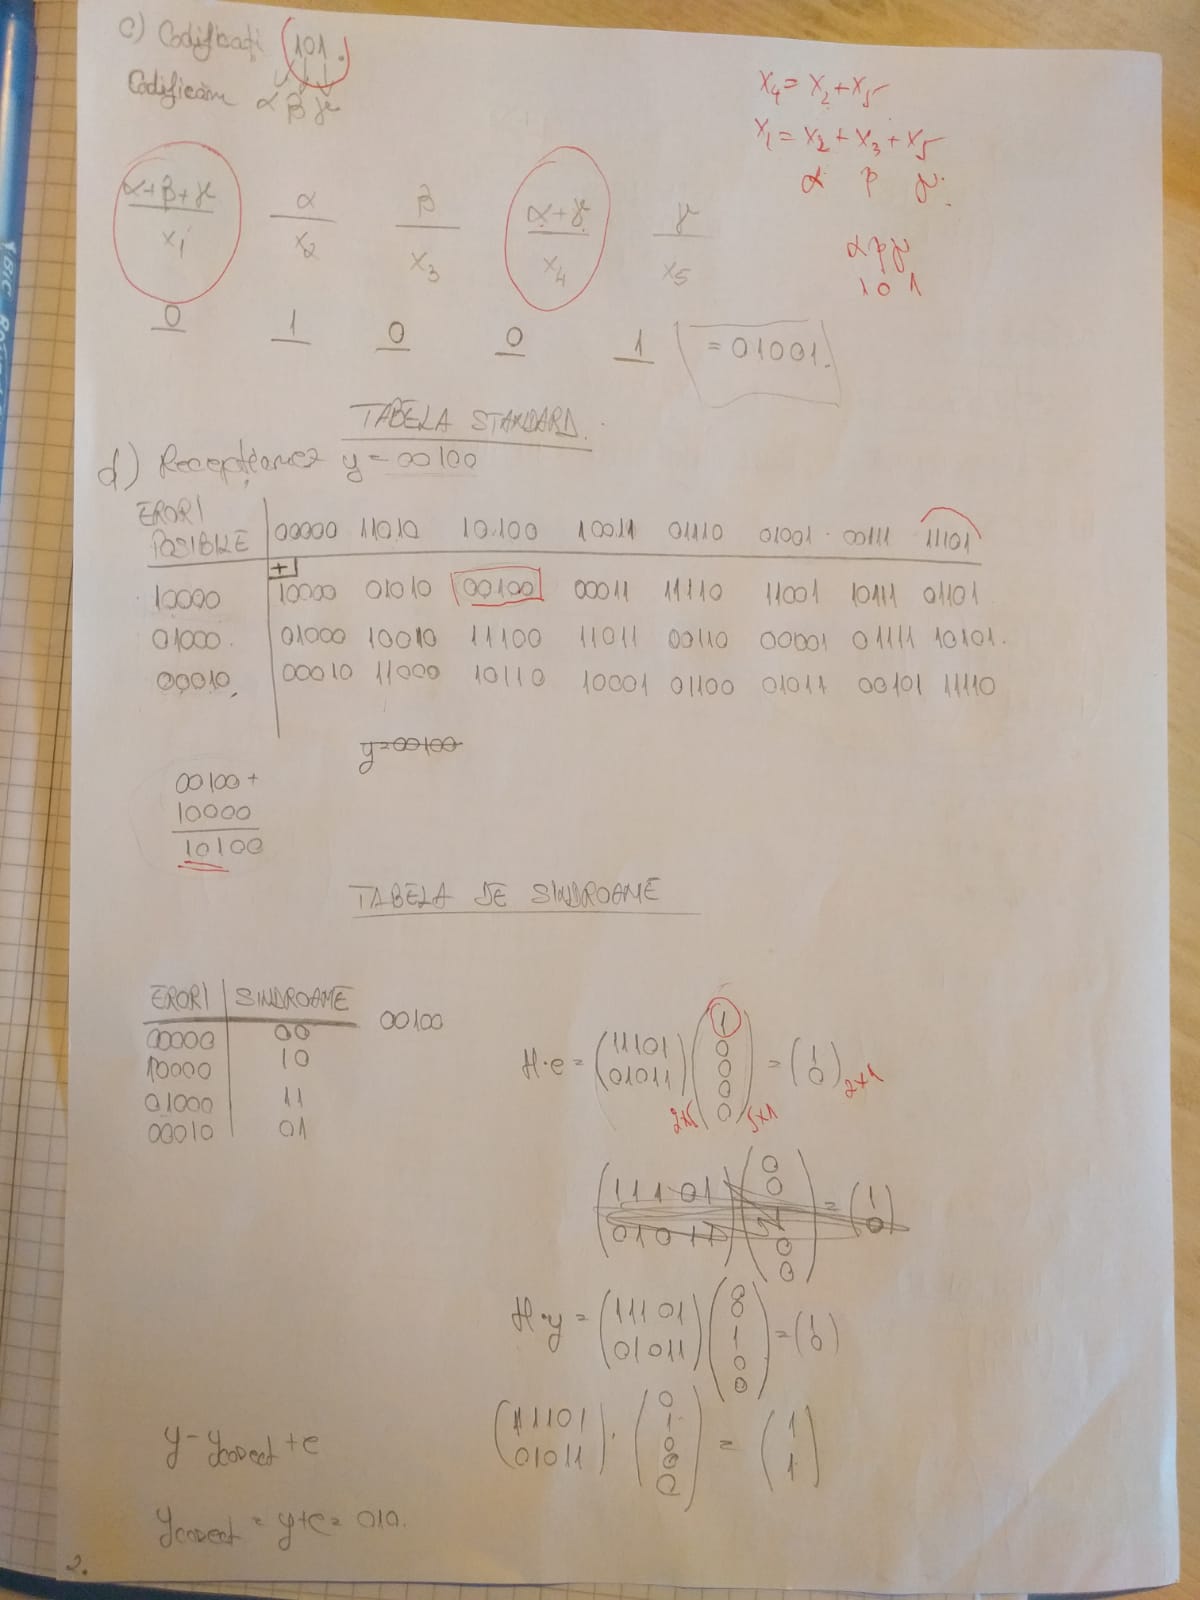 c) Codificați (101.)
Codificăm α β γ
x4 = x2 + x5
x1 = x2 + x3 + x5
α β γ
α β γ
1 0 1
α+β+γ α β α+γ γ
x1 x2 x3 x4 x5
0 1 0 0 1 = 01001.
TABELA STANDARD.
d) Recepționez y = 00100
ERORI
POSIBILE 00000 11010 10100 10011 01110 01001 00111 11101
+
10000 10000 01010 00100 00011 11110 11001 10111 01101
01000 01000 10010 11100 11011 00110 00001 01111 10101.
00010 00010 11000 10110 10001 01100 01011 00101 11110
y=00100
00100 +
10000
10100
TABELA DE SINDROAME
ERORI SINDROAME 00100
00000 00
10000 10
01000 11
00010 01
H·e = (11101 01011) (1 0 0 0 0) = (1 0) 2x1
2x5 5x1
(11101 01011) (0 0 1 0 0) = (1 0)
H·y = (11101 01011) (0 0 1 0 0) = (1 0)
(11101 01011) · (0 1 0 0 0) = (1 1)
y - ycorect + e
ycorect = y+e = 010.
2.